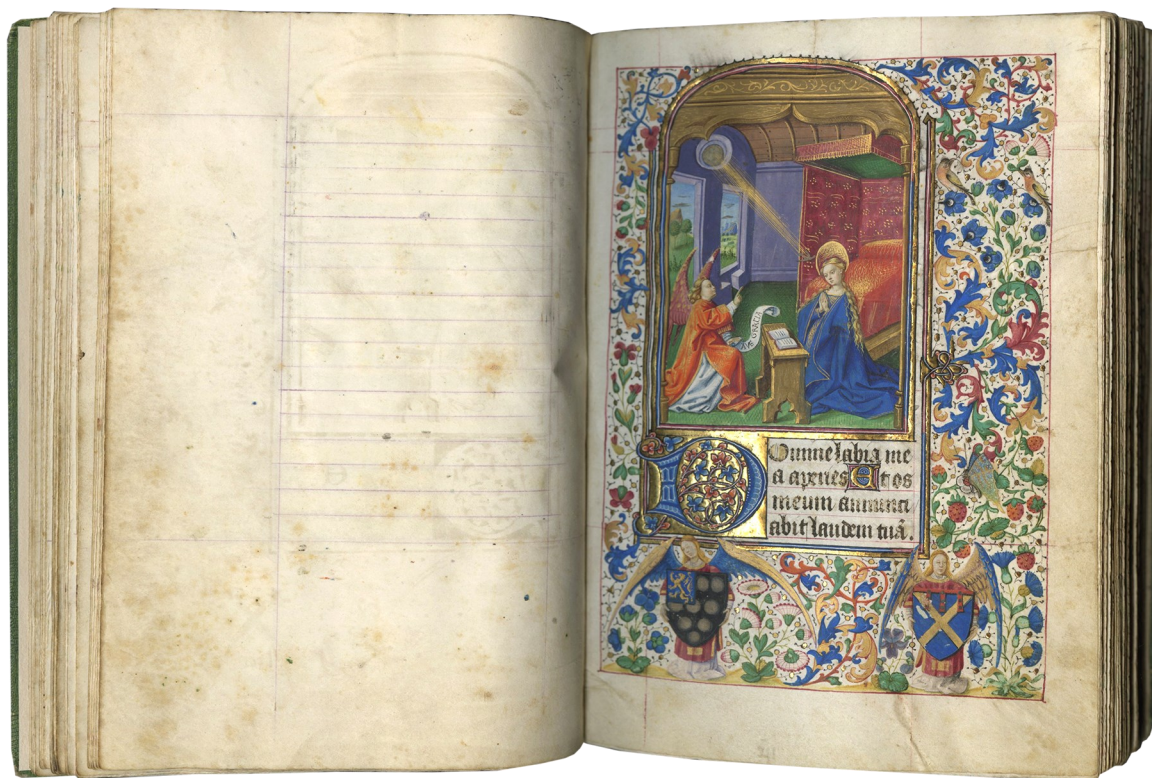 GRACIA
Domine labia me
a aperies Et os
meum annunci
abit laudem tuā.